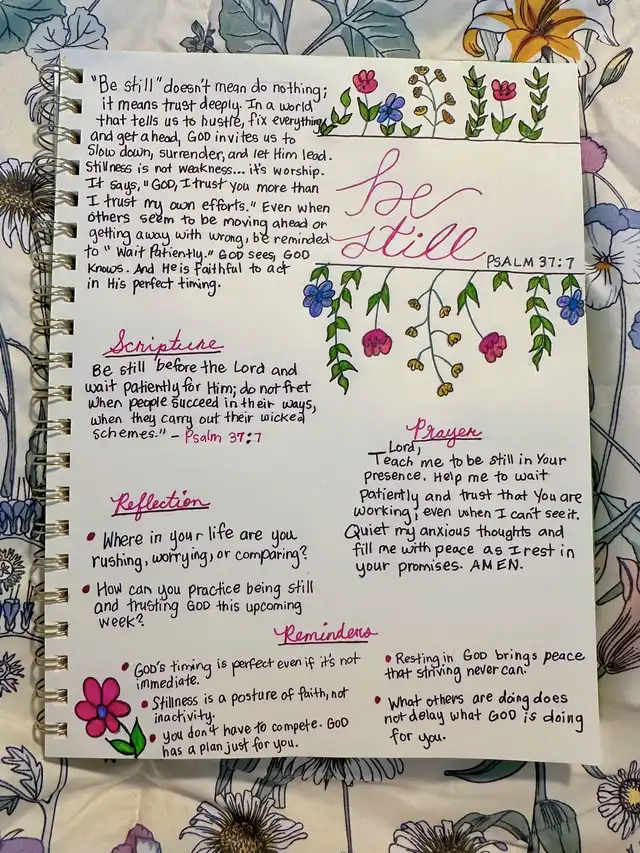 "Be still" doesn't mean do nothing;
it means trust deeply. In a world
that tells us to hustle, fix everything
and get ahead, GOD invites us to
slow down, surrender, and let Him lead.
Stillness is not weakness... it's worship.
It says, "GOD, I trust you more than
I trust my own efforts." Even when
others seem to be moving ahead or
getting away with wrong, be reminded
to "Wait Patiently." GOD sees, GOD
knows. And He is faithful to act
in His perfect timing.
be
still
PSALM 37:7
Scripture
Be still before the Lord and
wait patiently for Him; do not fret
when people succeed in their ways,
when they carry out their wicked
schemes." - Psalm 37:7
Prayer
Lord,
Teach me to be still in Your
presence. Help me to wait
patiently and trust that You are
working, even when I can't see it.
Quiet my anxious thoughts and
fill me with peace as I rest in
your promises. AMEN.
Reflection
• Where in your life are you
rushing, worrying, or comparing?
• How can you practice being still
and trusting GOD this upcoming
week?
Reminders
• God's timing is perfect even if it's not
immediate.
• Stillness is a posture of faith, not
inactivity.
• you don't have to compete. GOD
has a plan just for you.
• Resting in GOD brings peace
that striving never can.
• What others are doing does
not delay what GOD is doing
for you.